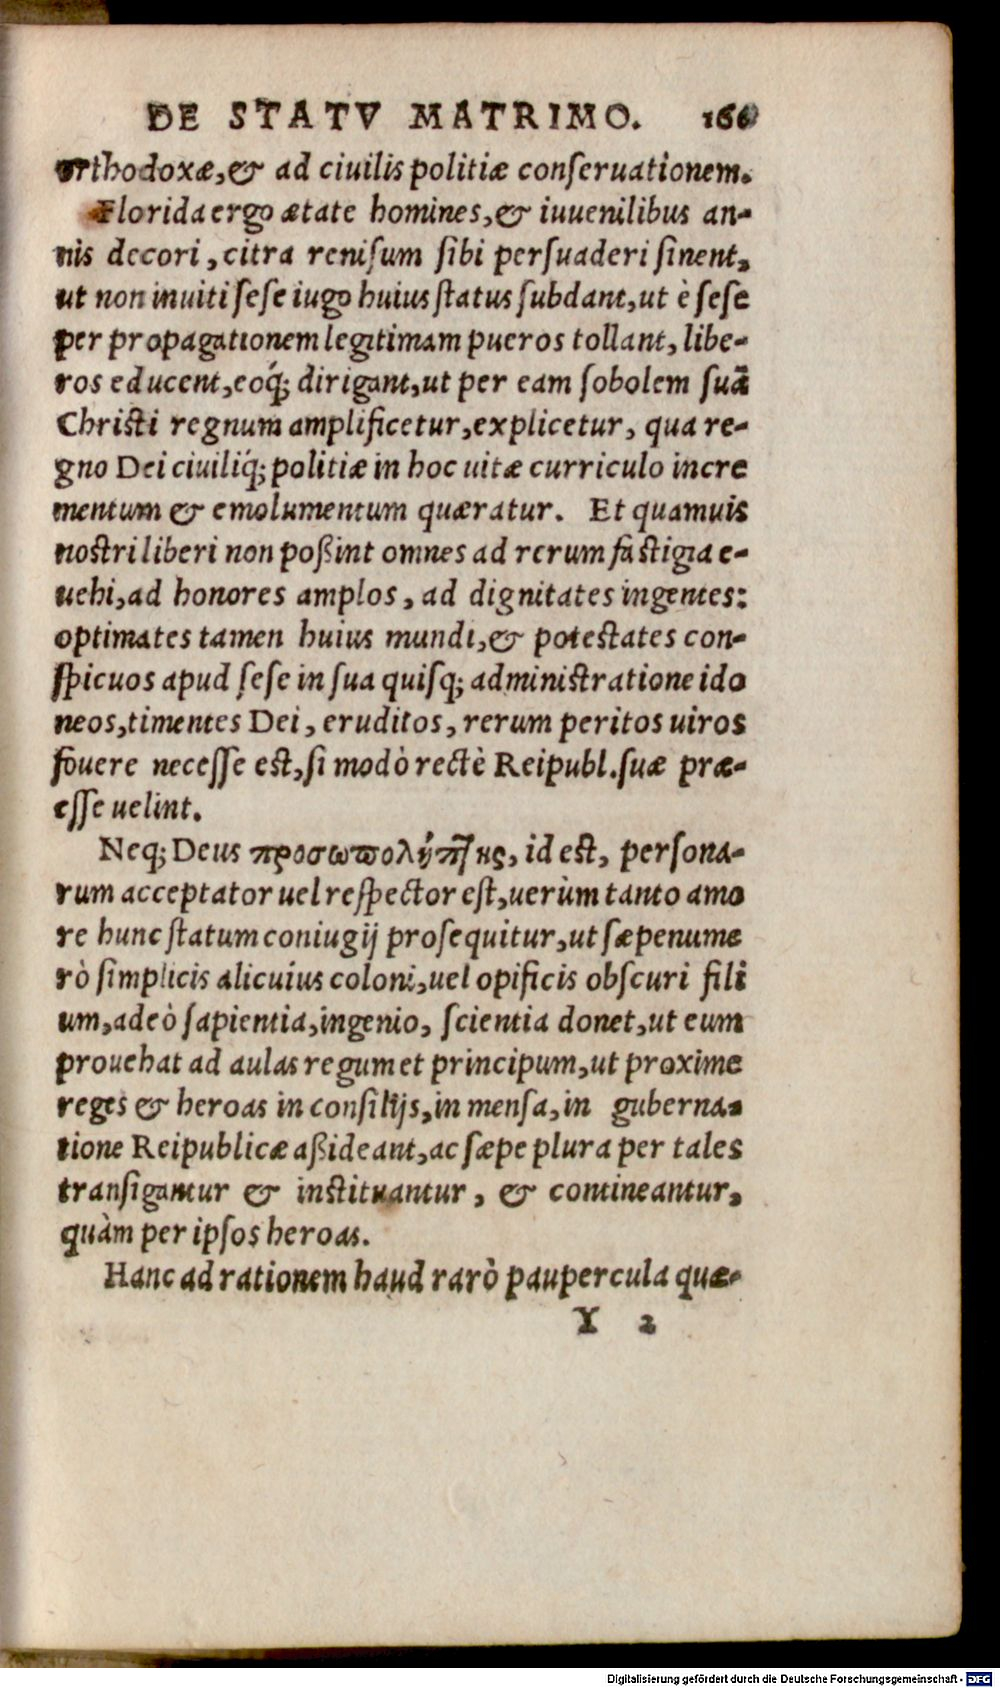 DE STATV MATRIMO. 166
orthodoxæ, & ad ciuilis politiæ conſeruationem.
Florida ergo ætate homines, & iuuenilibus an-
nis decori, citra reniſum ſibi perſuaderi ſinent,
ut non inuiti ſeſe iugo huius ſtatus ſubdant, ut è ſeſe
per propagationem legitimam pueros tollant, libe-
ros educent, eoq́; dirigant, ut per eam ſobolem ſuã
Chriſti regnum amplificetur, explicetur, qua re-
gno Dei ciuiliq́; politiæ in hoc uitæ curriculo incre
mentum & emolumentum quæratur. Et quamuis
noſtri liberi non poßint omnes ad rerum faſtigia e-
uehi, ad honores amplos, ad dignitates ingentes:
optimates tamen huius mundi, & poteſtates con-
ſpicuos apud ſeſe in ſua quiſq; adminiſtratione ido
neos, timentes Dei, eruditos, rerum peritos uiros
fouere neceſſe eſt, ſi modò rectè Reipubl. ſuæ præ-
eſſe uelint.
Neq; Deus προσωπολήπτης, id eſt, perſona-
rum acceptator uel reſpector eſt, uerùm tanto amo
re hunc ſtatum coniugij proſequitur, ut ſæpenume
rò ſimplicis alicuius coloni, uel opificis obſcuri fili
um, adeò ſapientia, ingenio, ſcientia donet, ut eum
prouehat ad aulas regum et principum, ut proxime
reges & heroas in conſilijs, in menſa, in guberna-
tione Reipublicæ aßideant, ac ſæpe plura per tales
tranſigantur & inſtituantur, & contineantur,
quàm per ipſos heroas.
Hanc ad rationem haud rarò paupercula quæ-
Y 2
Digitalisierung gefördert durch die Deutsche Forschungsgemeinschaft - DFG